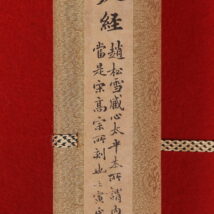 經
趙松雪藏心太平本所謂南
當是宋高宗所刻也寅